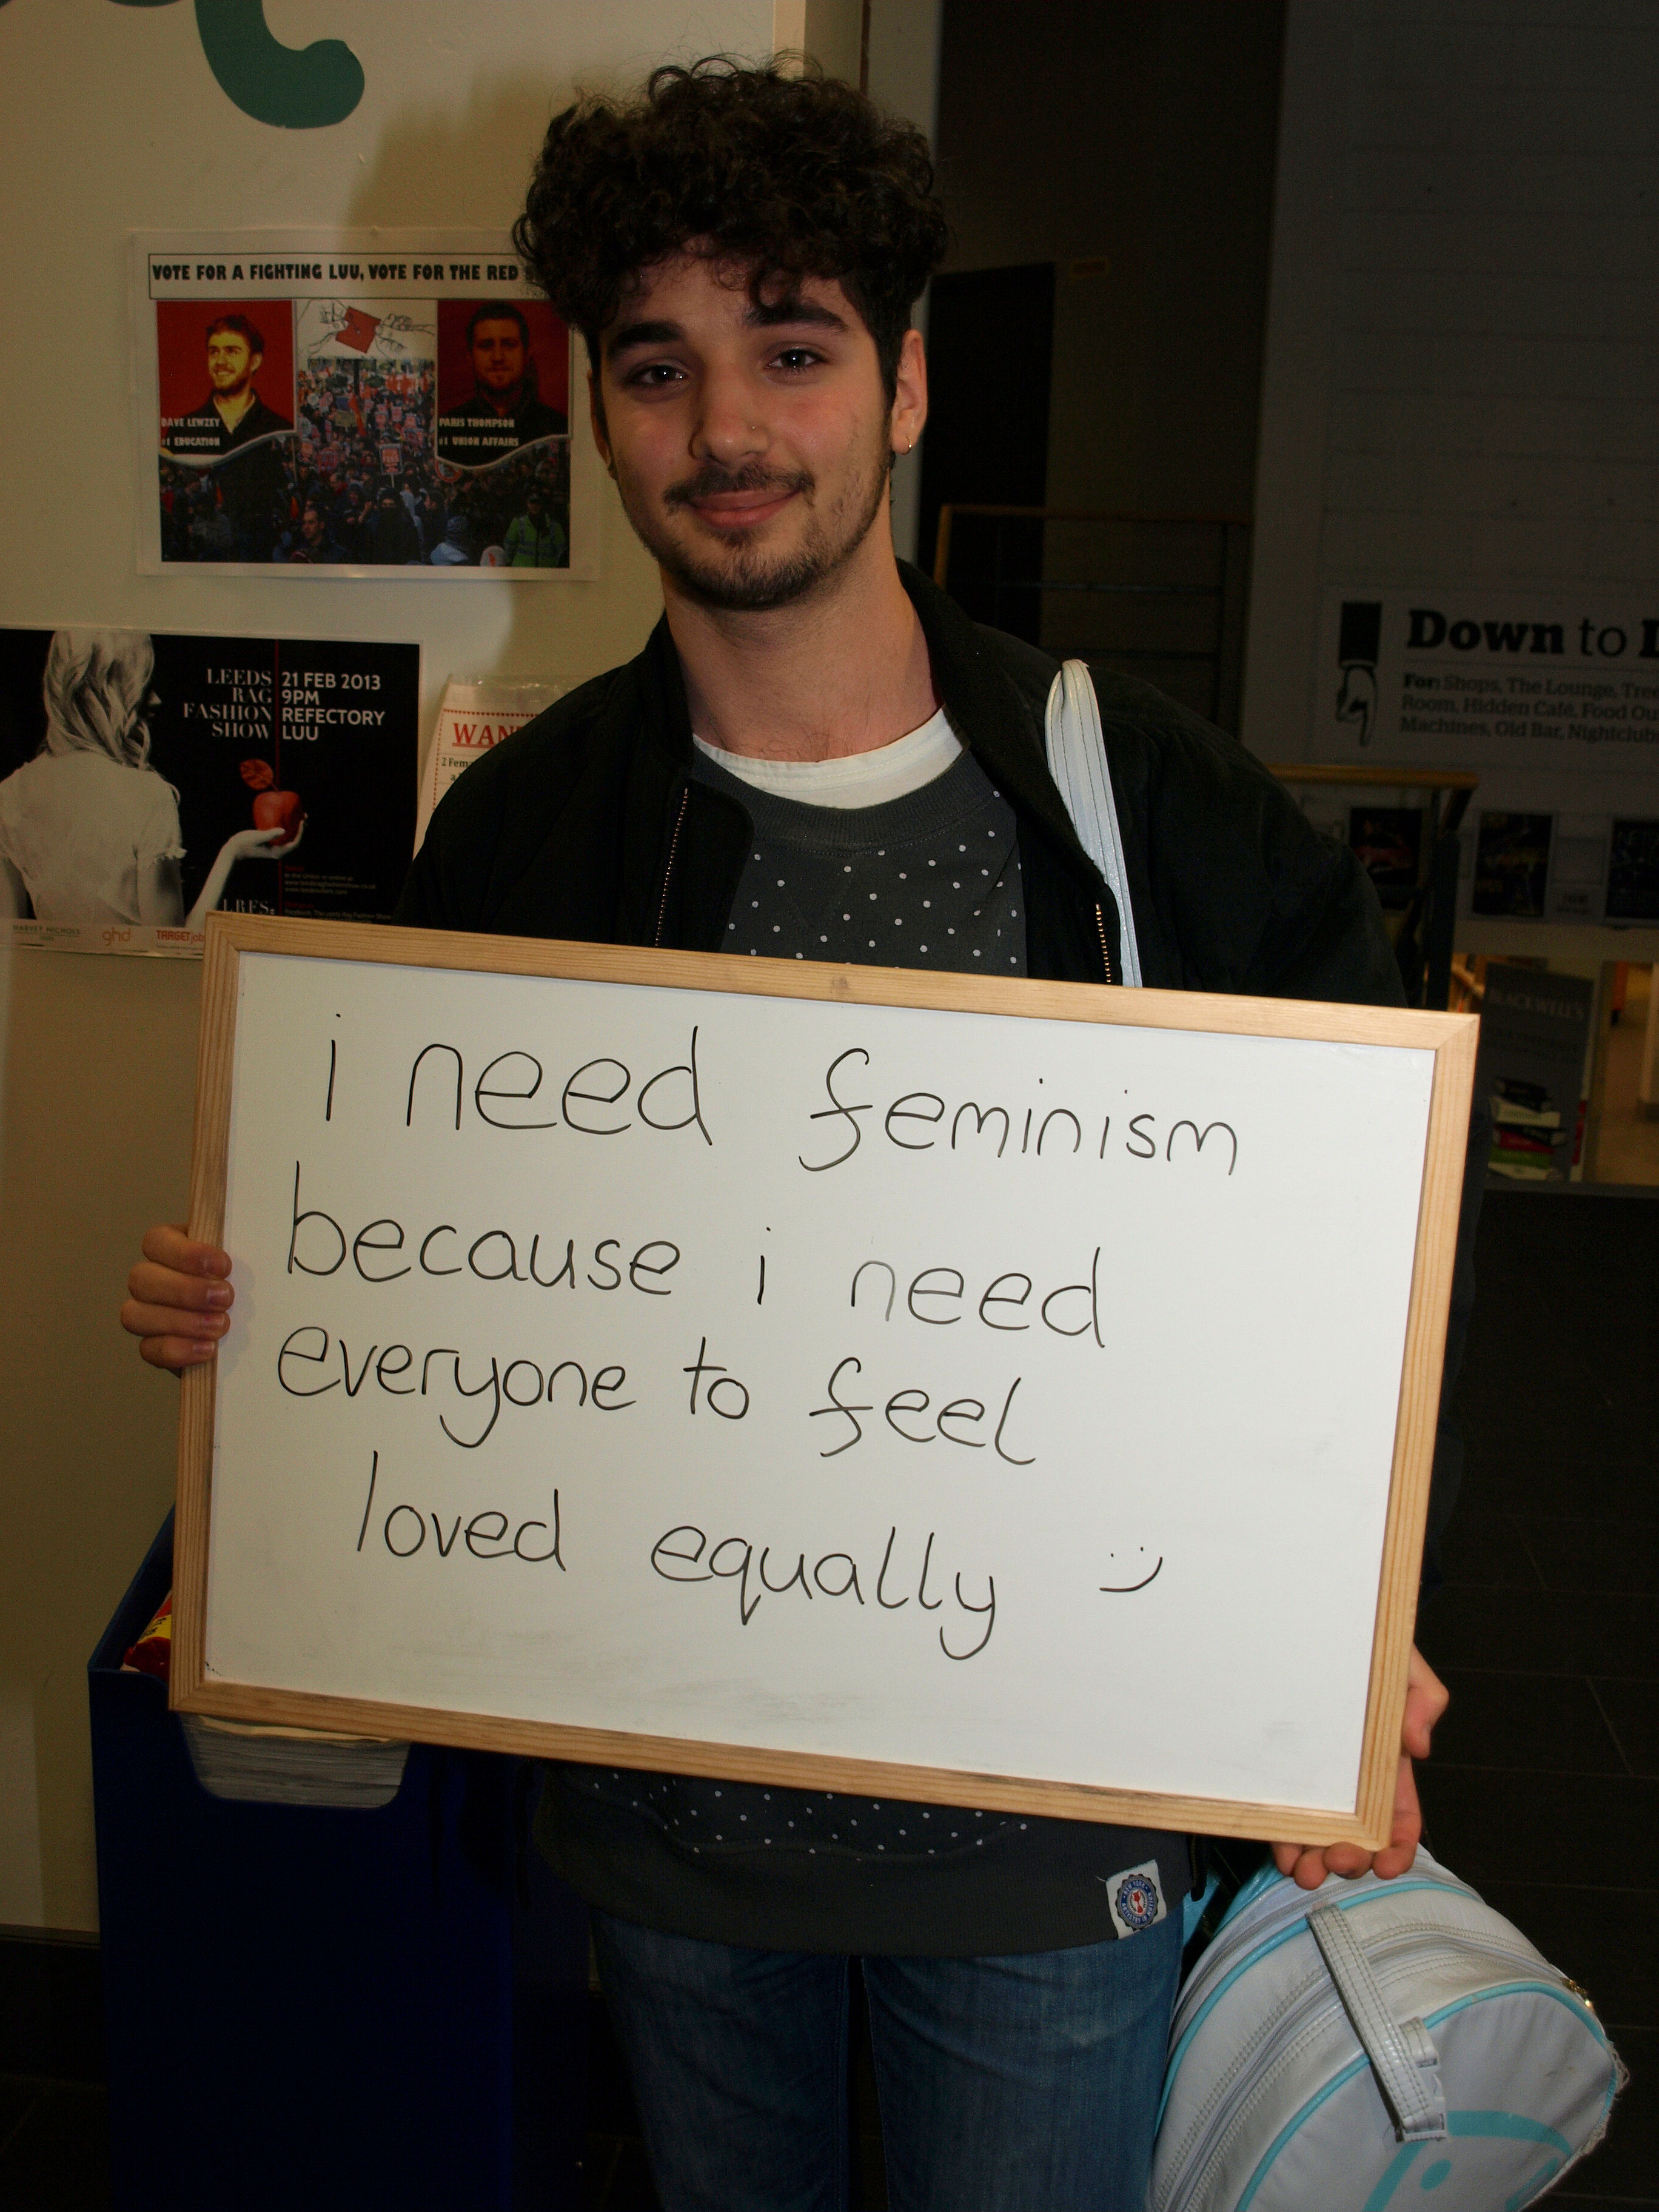 VOTE FOR A FIGHTING LUU, VOTE FOR THE RED
DAVE LEWZEY
#1 EDUCATION
PARIS THOMPSON
#1 UNION AFFAIRS
LEEDS
RAG
FASHION
SHOW
21 FEB 2013
9PM
REFECTORY
LUU
LRFS
HARVEY NICHOLS
ghd
TARGETjobs
2 Fem
Down to
For: Shops, The Lounge,
Room, Hidden Café, Food
Machines, Old Bar, Nightclub
BLACKWELL'S
i need feminism
because i need
everyone to feel
loved equally :)